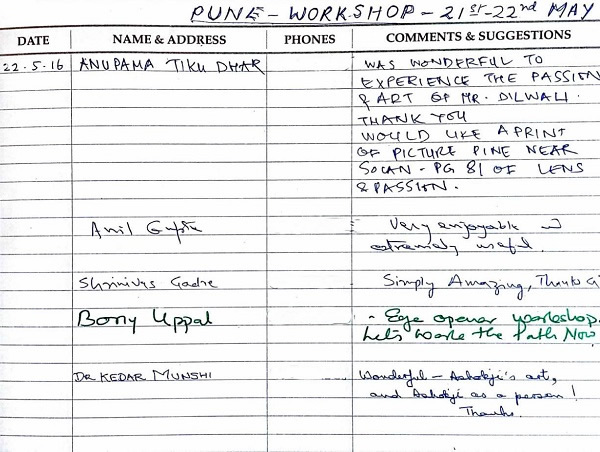 PUNE - WORKSHOP - 21st-22nd MAY
DATE NAME & ADDRESS PHONES COMMENTS & SUGGESTIONS
22.5.16 ANUPAMA TIKU DHAR WAS WONDERFUL TO
EXPERIENCE THE PASSION
& ART OF MR. DILWALI.
THANK YOU
WOULD LIKE A PRINT
OF PICTURE PINE NEAR
SOLAN - PG 81 OF LENS
& PASSION.
Anil Gupta Very enjoyable
extremely useful.
Shrinivas Gadre Simply Amazing, Thanks
Bony Uppal - Eye opener workshop.
Let's Walk the Path Now
DR KEDAR MUNSHI Wonderful - Ashokji's art,
and Ashokji as a person!
Thanks.